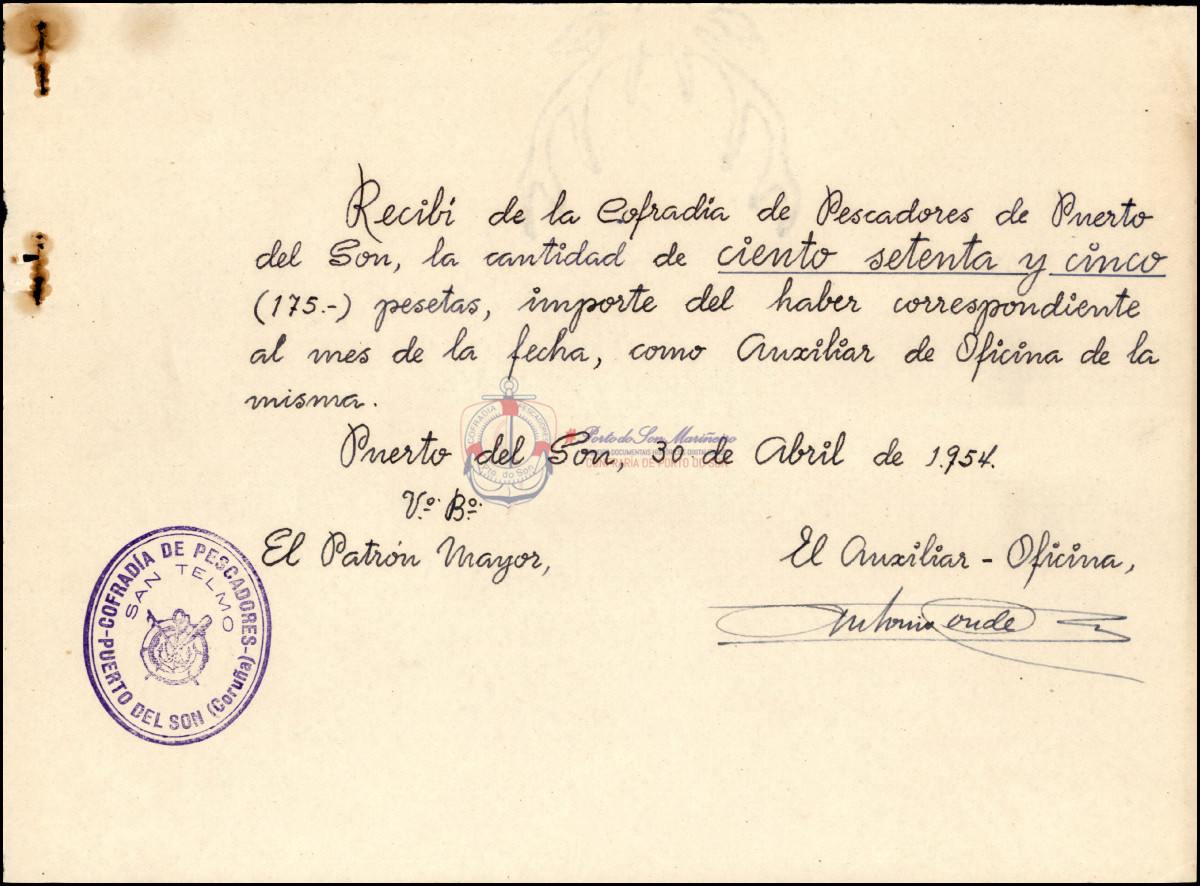 Recibí de la Cofradía de Pescadores de Puerto
del Son, la cantidad de ciento setenta y cinco
(175.-) pesetas, importe del haber correspondiente
al mes de la fecha, como Auxiliar de Oficina de la
misma.
Puerto del Son, 30 de Abril de 1.954.
Vº. Bº.
El Patrón Mayor,
El Auxiliar - Oficina,
Antonio Conde
COFRADÍA DE PESCADORES
SAN TELMO
PUERTO DEL SON (Coruña)
COFRADÍA PESCADORES
Pto. do Son
#Porto do Son Mariñeiro
CONFRARÍA DE PORTO DO SON